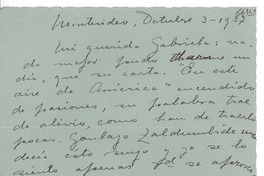 Montevideo, Octubre 3-1937
Mi querida Gabriela: na-
da mejor pudo
día, que su carta. En este
aire de América "encendido
de pasiones, su palabra trae
de alivio, como han de traerlo
pocas. Gonzalo Zaldumbide me
decía esto mismo
siento apenas se aproxi